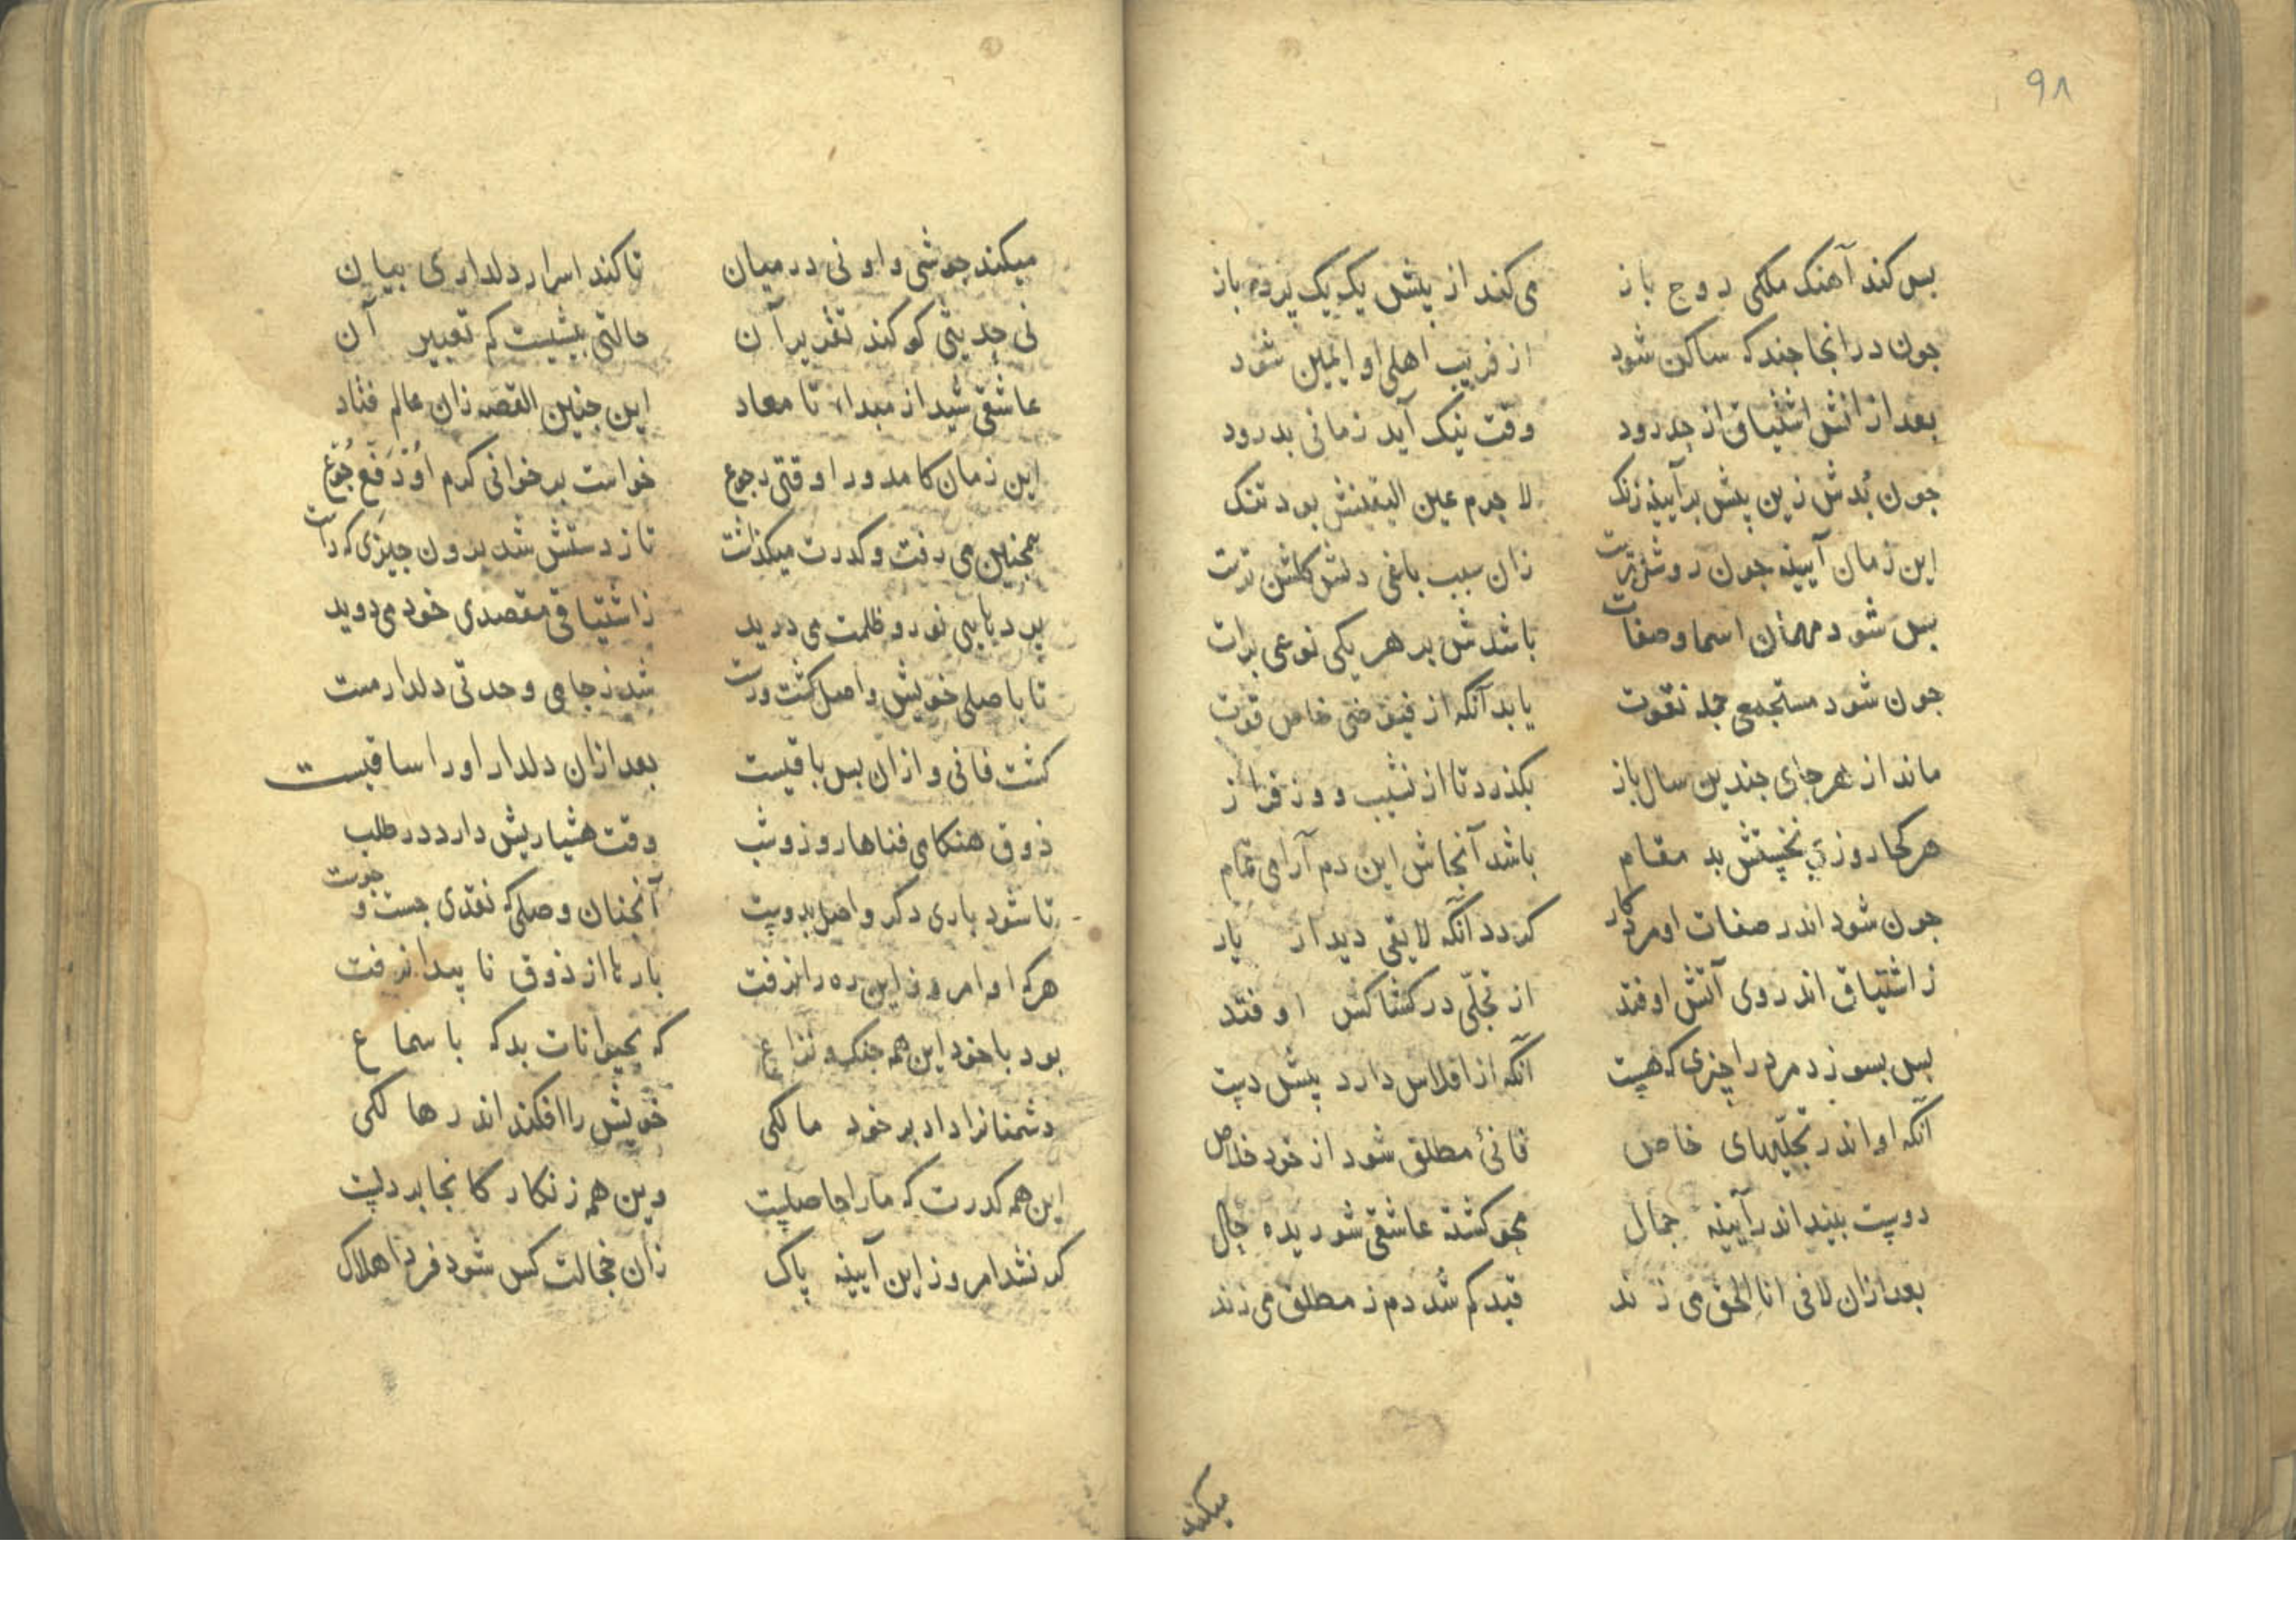 ۹۸
بس کند آهنک ملکی روح باز می کند از پیش یک یک پرده باز
جون در انجا جند که ساکن شود از فریب اهلی او ایمین شود
بعد از انش اشتیاق از حد رود وقت نیک آید زمانی بد رود
جون بُدش زین پیش بر آیینه زنک لا جرم عین الیقینش بود تنک
این زمان آیینه جون روشنترست زان سبب باغی دلش کلشن ترست
بس شود مهمان اسما و صفات باشدش بر هر یکی نوعی برات
جون شود مستجمعی جمله نعوت یابد آنکه از فیوضی خاص قوت
ماند از هر جای جندین سال باز بکذرد تا از نشیب و وز فراز
هر کجا روزی نخستش بد مقام باشد آنجاش این دم آرامی تمام
جون شود اندر صفات او مرد کار کردد آنکه لایقی دیدار یار
ز اشتیاق اندر وی آتش اوفتد از تجلّی در کشاکش اوفتد
بس بسوزد مرد را چیزی که هست آنکه از افلاس دارد پیش دست
آنکه او اندر تجلّیهای خاص فانئ مطلق شود از خود خلاص
دوست بیند اندر آیینه جمال محو کشته عاشقی شوریده حال
بعد ازان لافی انا الحق می زند قید کم شد دم ز مطلق می زند
میکند
میکند جوشی و او نی در میان تا کند اسرار دلداری بیان
نی حدیثی کو کند تقدیر آن حالتی بیشیست کم تعبیر آن
عاشقی شیدا ز مبداء تا معاد این جنین القصه زان عالم فتاد
این زمان کامد ورا وقتی رجوع خواست بر خوانی کرم او دفع جوع
همجنین می رفت و کدرت میکذاشت تا ز دستش شد برون جیزی که داشت
پرد یابی نور و ظلمت می درید ز اشتیاقی مقصدی خود می دوید
تا با صلی خویش واصل کشت ورست شد ز جامی وحدتی دلدار مست
کشت فانی و ازان بس باقیست بعد ازان دلدار او را ساقیست
ذوق هنکامی فناها روز و شب وقت هشیاریش دارد در طلب
تا شود باری دکر واصل بدوست آنجنان وصلی که نقدی جست و جوست
هر که او امروز این ره را نرفت بار ها از ذوق نا پیدا نرفت
بود با خود این همه جنک و نزاع که بحیوانات بد که با سماع
دشمنانرا داد بر خود مالکی خویش را افکند اندر هالکی
این همه کدرت که ما را حاصلیست وین همه زنکار کانجا بر دلیست
کر نشد امروز این آیینه پاک زان خجالت کس شود فردا هلاک